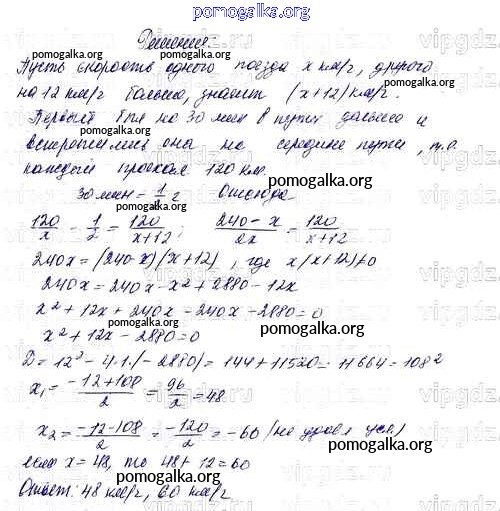 pomogalka.org
Решение:
pomogalka.org pomogalka.org
Пусть скорость одного поезда x км/г, другого
на 12 км/г больше, значит (x+12) км/г.
pomogalka.org pomogalka.org
Первый был на 30 мин в пути дольше и
встретились они на середине пути, т.е.
pomogalka.org
каждый проехал 120 км.
pomogalka.org
30 мин = 1/2 г Отсюда
120/x - 1/2 = 120/(x+12); (240-x)/2x = 120/(x+12)
pomogalka.org
240x = (240-x)(x+12), где x(x+12)≠0
240x = 240x - x² + 2880 - 12x
pomogalka.org
x² + 12x + 240x - 240x - 2880 = 0
pomogalka.org
x² + 12x - 2880 = 0
D = 12² - 4·1·(-2880) = 144 + 11520 = 11664 = 108²
pomogalka.org
x₁ = (-12+108)/2 = 96/2 = 48
pomogalka.org
x₂ = (-12-108)/2 = -120/2 = -60 (не удовл усл)
pomogalka.org
если x = 48, то 48 + 12 = 60
pomogalka.org
Ответ: 48 км/г, 60 км/г
pomogalka.org